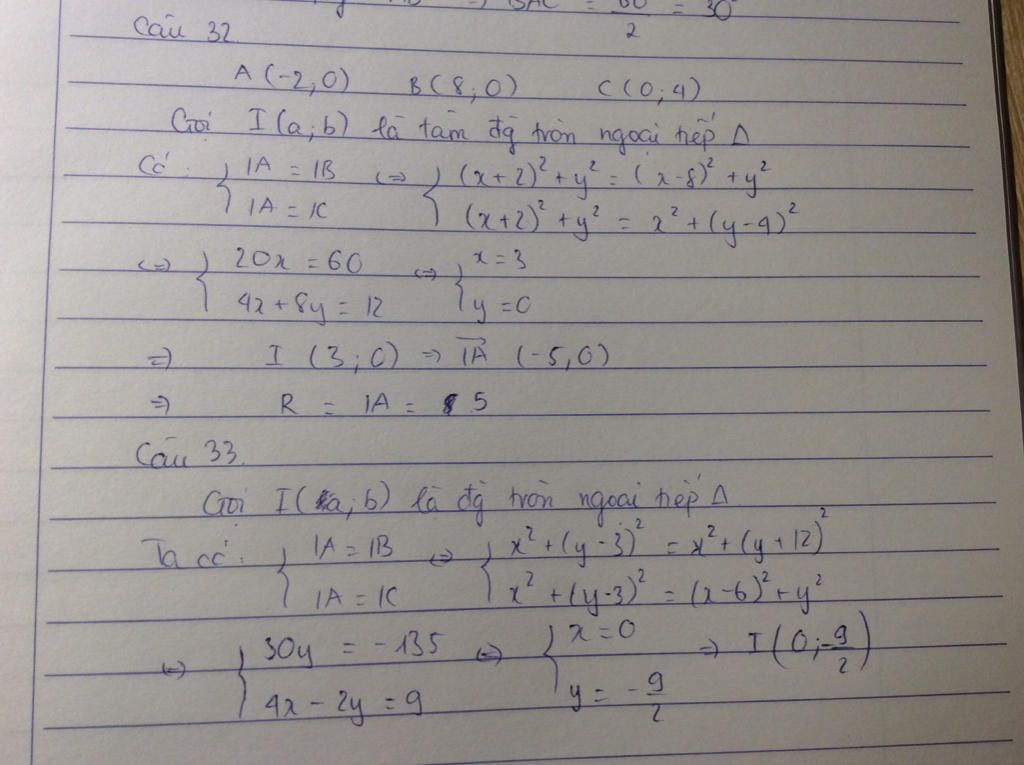 BAC = 60/2 = 30°
Câu 32
A(-2,0) B(8;0) C(0;4)
Gọi I(a;b) là tâm đg tròn ngoại tiếp Δ
Có: { IA = IB ⇔ { (x+2)² + y² = (x-8)² + y²
IA = IC (x+2)² + y² = x² + (y-4)²
⇔ { 20x = 60 ⇔ { x = 3
4x + 8y = 12 y = 0
⇒ I (3;0) ⇒ IA (-5,0)
⇒ R = IA = 5
Câu 33.
Gọi I(a;b) là đg tròn ngoại tiếp Δ
Ta có: { IA = IB ⇔ { x² + (y-3)² = x² + (y+12)²
IA = IC x² + (y-3)² = (x-6)² + y²
⇔ { 30y = -135 ⇔ { x = 0 ⇒ I(0;-9/2)
4x - 2y = 9 y = -9/2